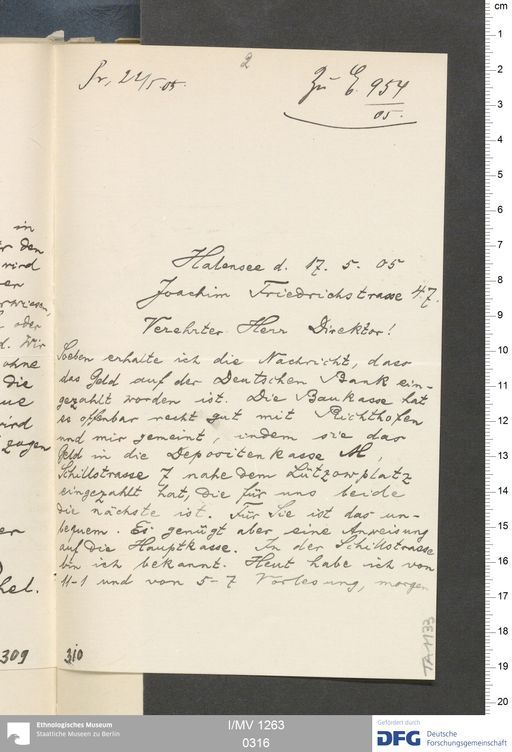 2
Pr. 22/5.05.
Zu E. 954
05.
Halensee d. 17. 5. 05
Joachim Friedrichstrasse 47.
Verehrter Herr Direktor!
Soeben erhalte ich die Nachricht, dass
das Geld auf der Deutschen Bank ein-
gezahlt worden ist. Die Baukasse hat
es offenbar recht gut mit Richthofen
und mir gemeint, indem sie das
Geld in die Depositenkasse M,
Schillstrasse 7 nahe dem Lützowplatz
eingezahlt hat, die für uns beide
die nächste ist. Für Sie ist das un-
bequem. Es genügt aber eine Anweisung
auf die Hauptkasse. In der Schillstrasse
bin ich bekannt. Heut habe ich von
11-1 und von 5-7 Vorlesung, morgen
in
den
wird
oder
d. Wir
ohne
die
309
310
TA 1133
cm
1
2
3
4
5
6
7
8
9
10
11
12
13
14
15
16
17
18
19
20
Ethnologisches Museum
Staatliche Museen zu Berlin
I/MV 1263
0316
Gefördert durch
DFG Deutsche
Forschungsgemeinschaft